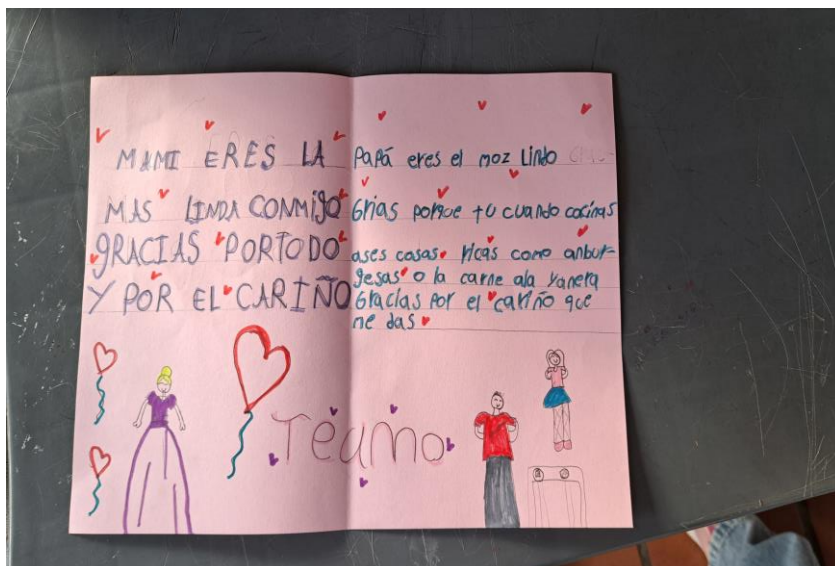 MAMI ERES LA
MAS LINDA CONMIGO
GRACIAS PORTODO
Y POR EL CARIÑO
Papá eres el moz Lindo
Grias porque tu cuando cocinas
ases cosas ricas como anbur-
gesas o la carne ala yanera
Gracias por el cariño que
me das
Teamo